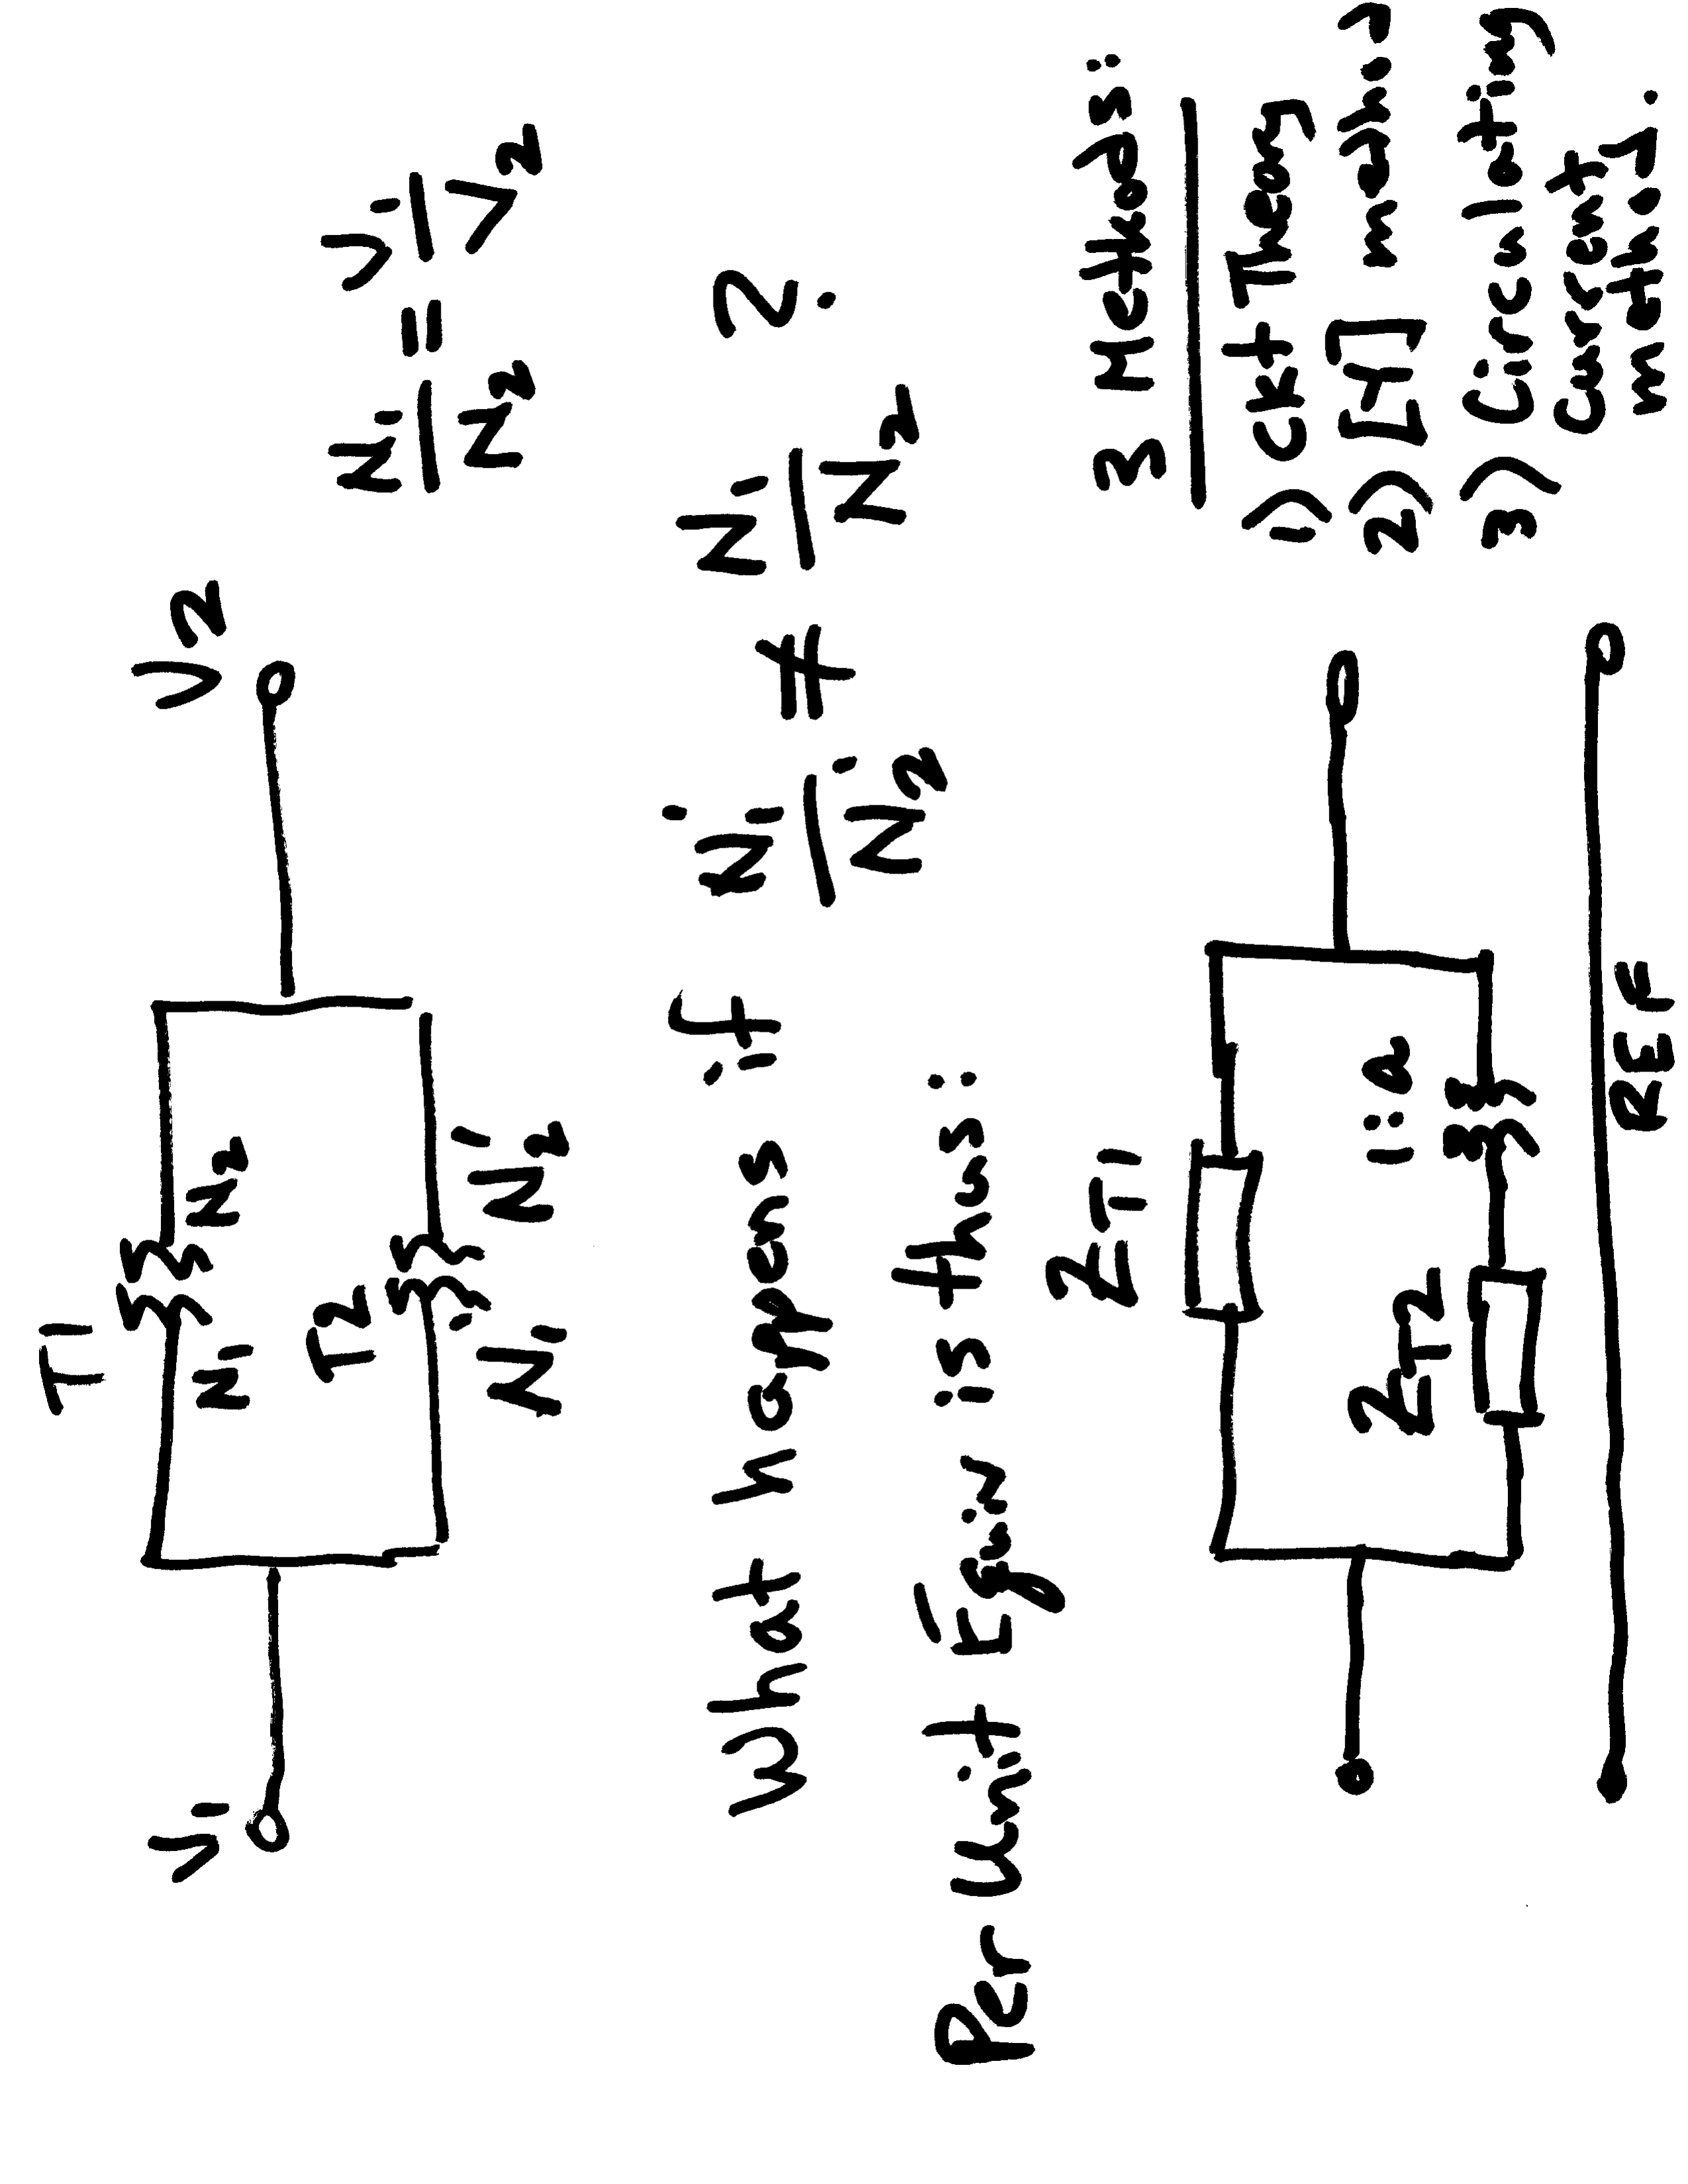 T1
V1 V2
N1 N2
N1/N2 = V1/V2
T2
N1' N2'
What happens if N1'/N2' ≠ N1/N2 ?
Per Unit Equiv is thus:
ZT1
3 Methods:
1) Ckt Theory
ZT2 1:a
2) [Y] methos
3) Circulating
Current
method.
REF